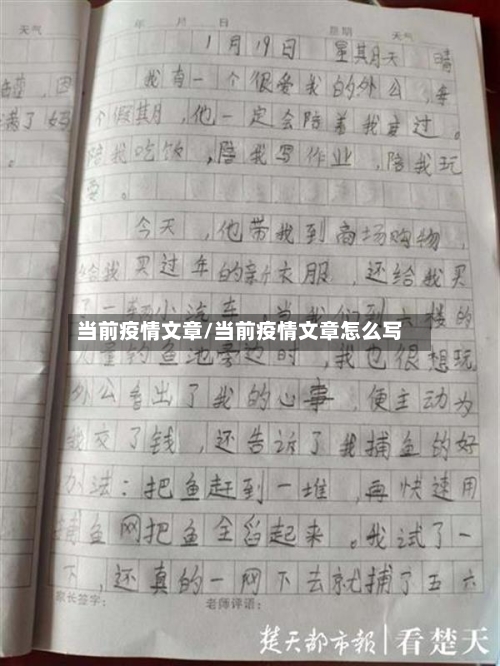 天气
年 月 日 星期 天气
1月19日 星期天 晴
我有一个很爱我的外公,每
个假期,他一定会陪着我度过。
陪我吃饭,陪我写作业,陪我玩
耍。
今天,他带我到商场购物,
给我买过年的新衣服,还给我买
了一辆小汽车。当我们到六楼的
当前疫情文章/当前疫情文章怎么写
儿童钓鱼池旁边时,我也很想玩
外公看出了我的心事,便主动为
我交了钱,还告诉了我捕鱼的好
办法:把鱼赶到一堆,再快速用
捕鱼网把鱼全舀起来。我试了一
下,还真的一网下去就捕了五六
家长签字: 老师评语:
楚天都市报 看楚天